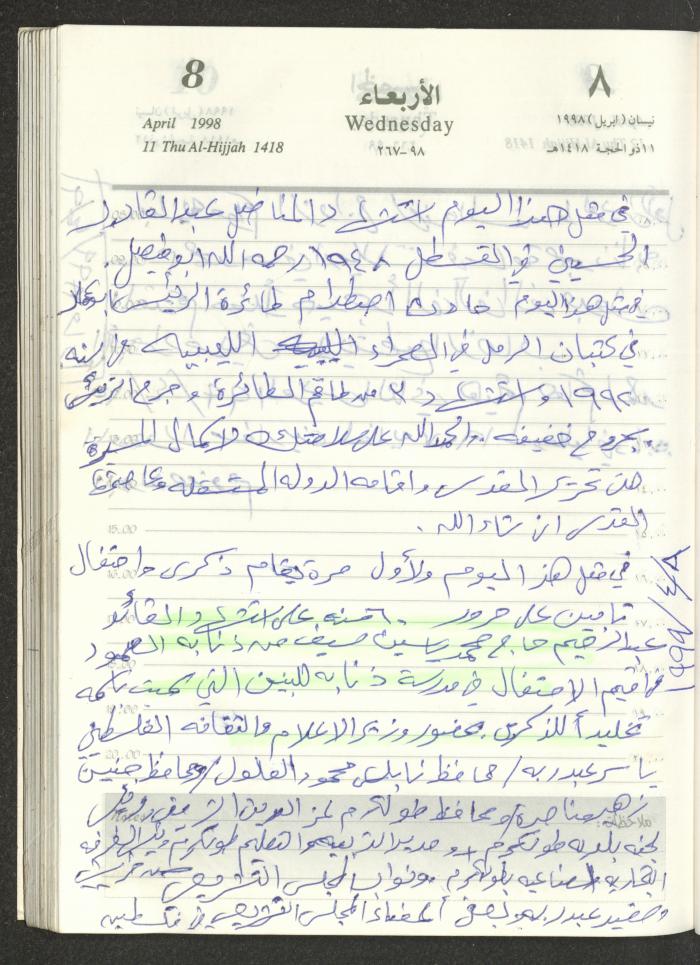 8
April 1998
11 Thu Al-Hijjah 1418
الأربعاء
Wednesday
٩٨-٢٦٧
٨
نيسان (ابريل) ١٩٩٨
١١ ذو الحجة ١٤١٨هـ
في مثل هذا اليوم استشهد المناضل عبد القادر
الحسيني في القسطل ١٩٤٨ رحمه الله ابو فيصل.
في مثل هذا اليوم حادث اصطدام طائرة الرئيس ابو عمار
في كثبان الرمل في الصحراء الليبية من سنة
١٩٩٢ واستشهد ٣ من طاقم الطائرة وجرح الرئيس
بجروح خفيفه والحمد لله على سلامتك لاكمال المسيرة
حتى تحرير المقدس واقامة الدوله المستقله وعاصمتها
القدس ان شاء الله.
في مثل هذا اليوم ولأول مرة يقام ذكرى واحتفال
تأبين على مرور ٦٠ سنه على استشهاد القائد
عبد الرحيم حاج محمد ياسين سيف من ذنابه الصمود
واقيم الاحتفال في مدرسة ذنابه للبنين التي سميت باسمه
تخليداً للذكرى بحضور وزير الاعلام والثقافه الفلسطيني
ياسر عبد ربه / محافظ نابلس محمود العلول / ومحافظ جنين
زهير مناصرة ومحافظ طولكرم عز الدين الشريف
لجنه بلديه طولكرم ومدير التربيه والتعليم طولكرم الغرفه
التجاريه الصناعيه بطولكرم ونواب المجلس التشريعي
عبد ربه وبعض أعضاء المجلس التشريعي في فلسطين
١٩٩٨/٤/٨
15.00